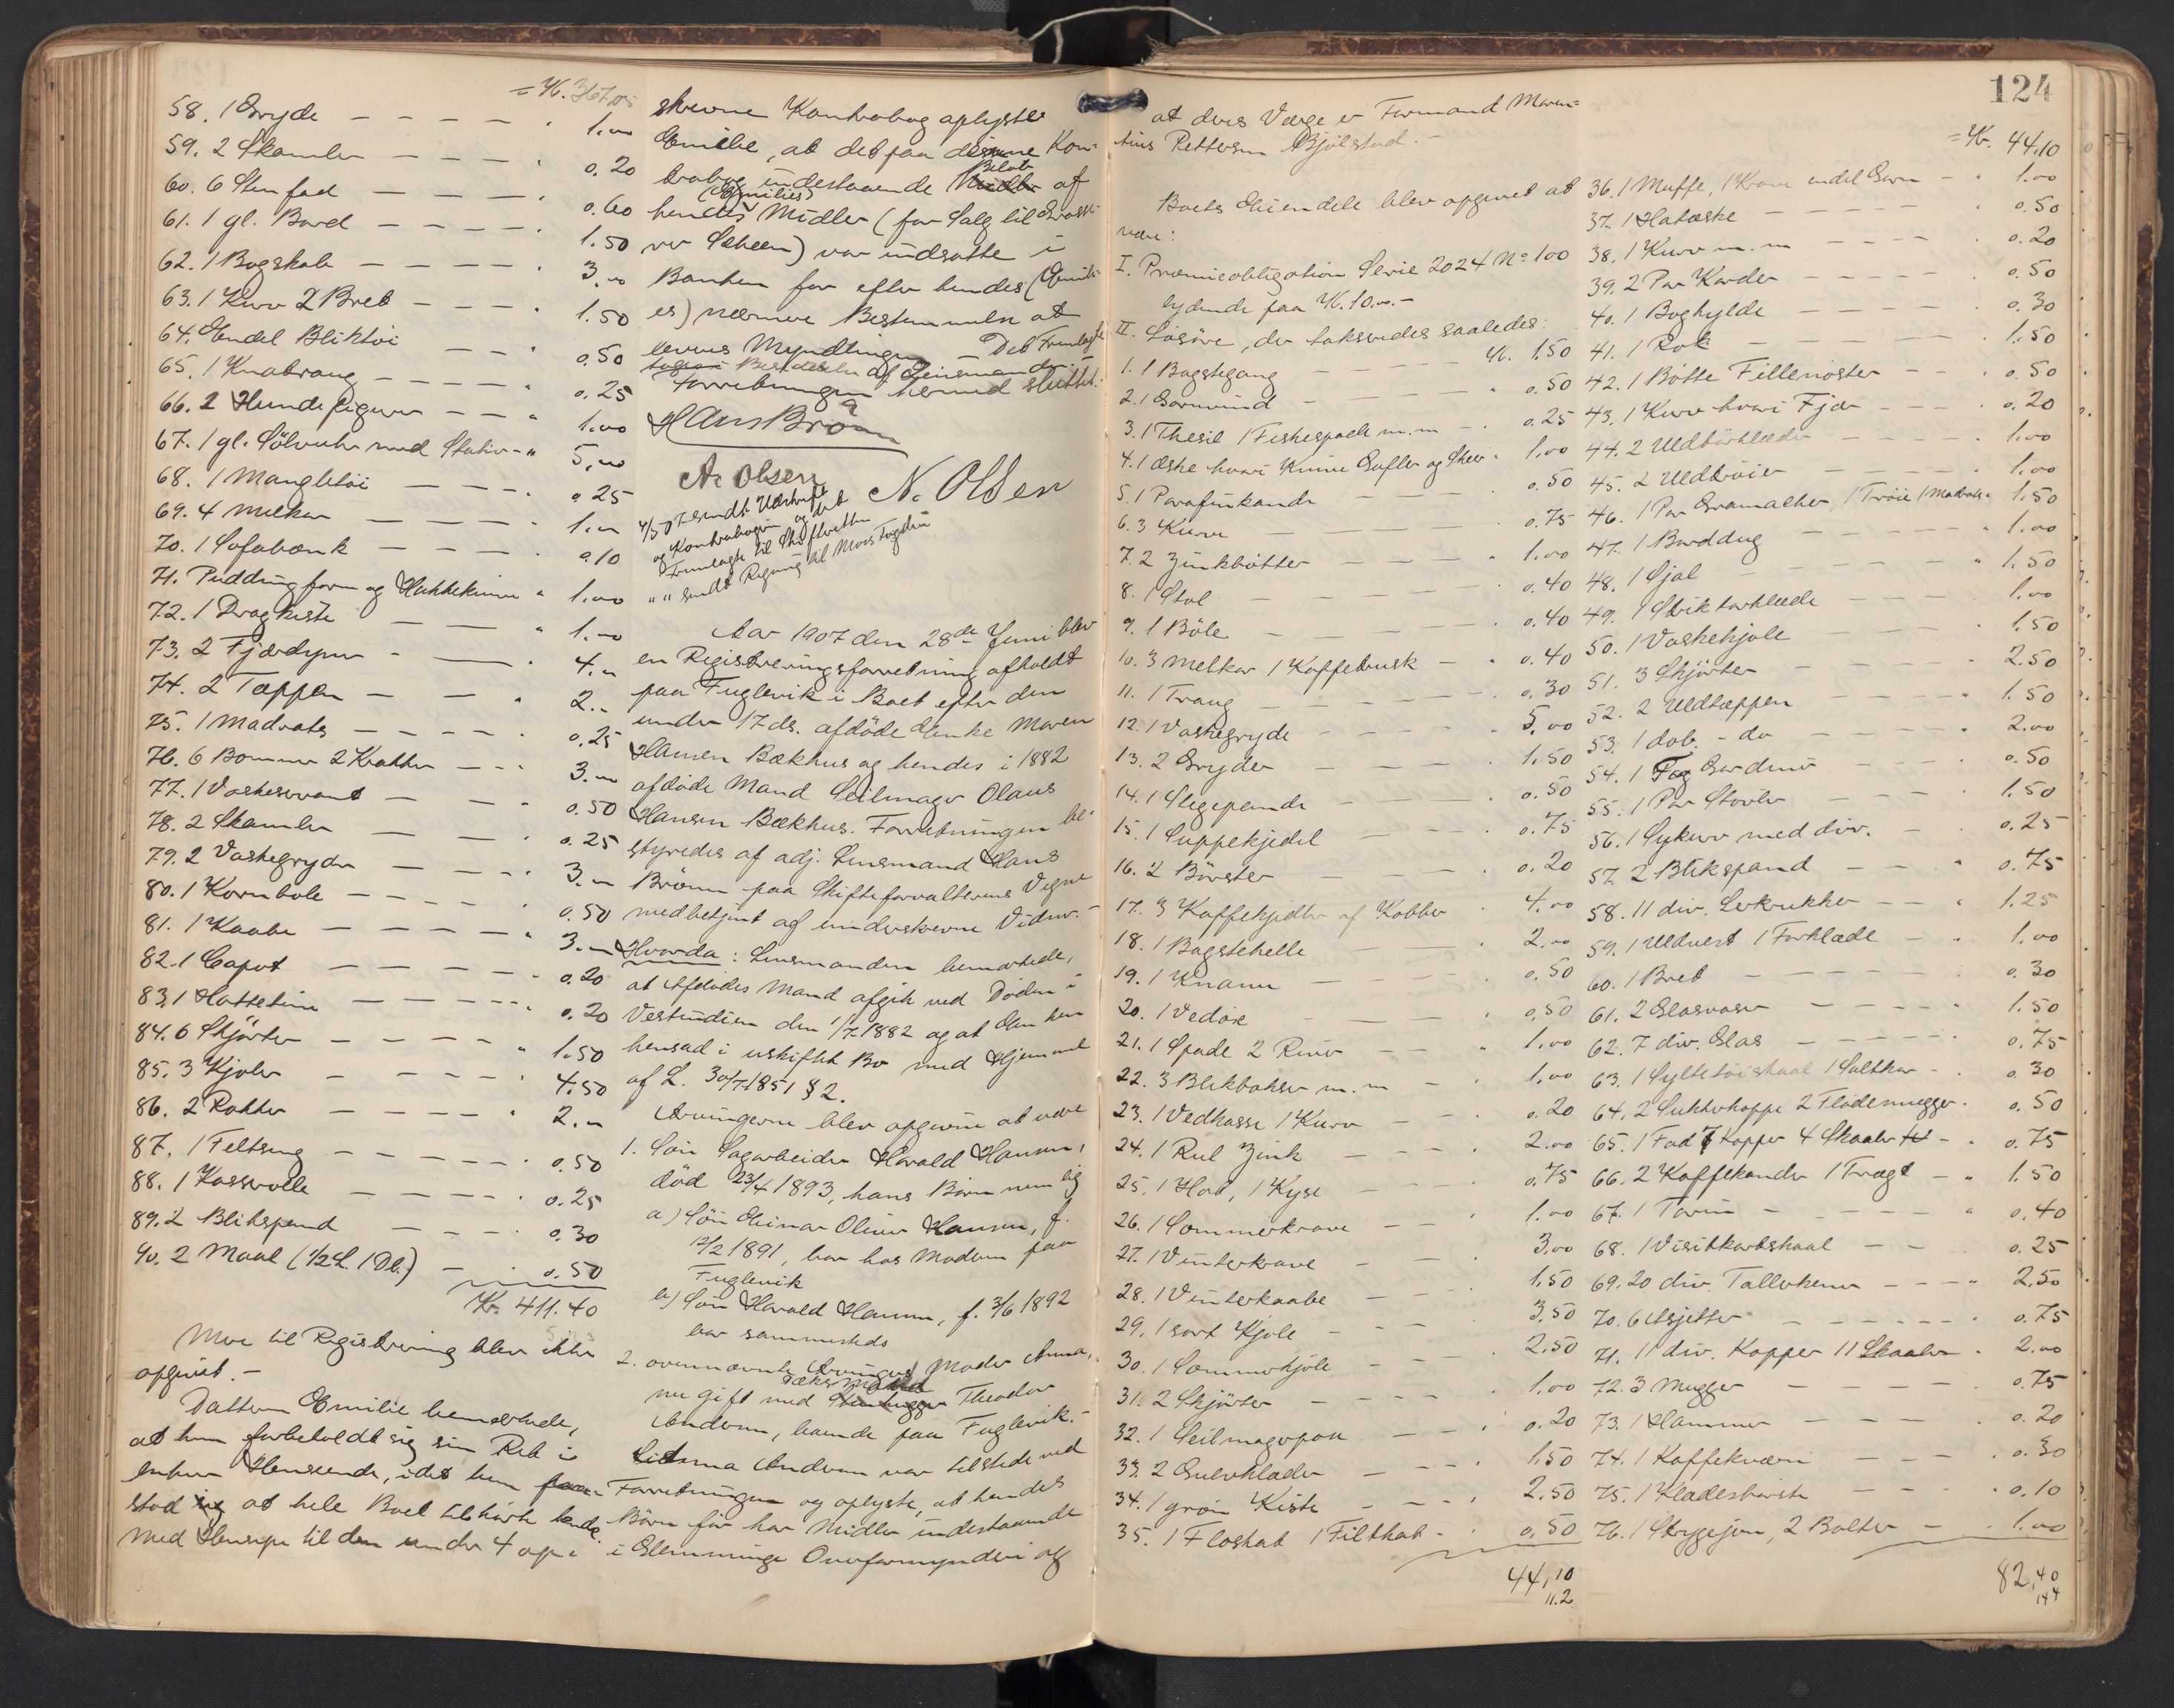 = Kr. 367.05
58. 1 Gryde — — — — " 1.00
59. 2 Skamler — — — " 0.20
60. 6 Stenfad — — — " 0.60
61. 1 gl. Bord — — — — " 1.50
62. 1 Bogskab — — — — " 3.00
63. 1 Kurv 2 Bret — — — " 1.50
64. Endel Bliktøi — — " 0.50
65. 1 — — — — " 0.25
66. 2 Hundefigurer — — " 1.00
67. 1 gl. Sölvuhr med Stativ - " 5.00
68. 1 Mangletøi — — — " 0.25
69. 4 Melkar — — — " 1.00
70. 1 Sofabænk — — — " 0.10
71. Puddingform og Hakkekniv " 1.00
72. 1 Dragkiste — — " 1.00
73. 2 Fjærdyner - — " 4.00
74. 2 Tæpper — — " 2.00
75. 1 Madrats — — — — " 0.25
76. 6 Bommer 2 — — " 3.00
77. 1 Vaskeservant — — " 0.50
78. 2 Skamler — — " 0.25
79. 2 Vaskegryder — — " 3.00
80. 1 Kornbøle — — — — " 0.50
81. 1 Kaabe — — — — " 3.00
82. 1 Capot — — — — — " 0.20
83. 1 Hattetine — — — — " 0.20
84. 6 Skjörter — — — — " 1.50
85. 3 Kjoler — — — — " 4.50
86. 2 — — — — " 2.00
87. 1 Feltseng — — — — " 0.50
88. 1 — — — — " 0.25
89. 2 Blikspand — — " 0.30
90. 2 Maal (1/2 L. 1 Dl.) — " 0.50
Kr. 411.40
Mere til Registrering blev ikke
opgivet. -
Datteren Emilie bemærkede,
at hun forbeholdt sig sin Ret i
enhver Henseende, idet hun
stod at hele Boet tilhørte hende
Med Hensyn til den under 4 op-
skrevne Kontrabog oplyste
Emilie, at det paa denne Kon-
trabog indestaaende Beløb af
hendes (Emilies) Midler (for Salg til
) var indsatte i
Banken for efter hendes (Emili-
es) nærmere Bestemmelse at
Myndlingen — Det Fremlagte
toges i Besiddelse af Lensmanden
Forretningen hermed sluttet.
Hans Brönn
A. Olsen
N. Olsen
4/7 07 sendt Udskrift
og Kontrabogen og det
Fremlagte til Skifteretten
" " sendt Regning til Moss Fogderi
Aar 1907 den 28de Juni blev
en Registreringsforretning afholdt
paa Fuglevik i Boet efter den
under 17 ds. afdöde Enke Maren
Hansen Bækhus og hendes i 1882
afdöde Mand Seilmager Olaus
Hansen Bækhus. Forretningen be-
styredes af adj. Lensmand Hans
Brönn paa Skifteforvalterens Vegne
medbetjent af underskrevne Vidner. -
Hvorda: Lensmanden bemærkede,
at Afdødes Mand afgik ved Døden i
Vestindien den 1/7 1882 og at Enken
hensad i uskiftet Bo med Hjemmel
af L. 30/7 1851 § 2.
Arvingerne blev opgivne at være
1. Sön Sagarbeider Harald Hansen,
död 23/4 1893, hans Börn nemlig
a) Sön Einar Oliver Hansen, f.
12/2 1891, bor hos Moderen paa
Fuglevik
b) Sön Harald Hansen, f. 3/6 1892
bor sammesteds
2. ovennævnte Arvingers Moder Anna,
nu gift med Theodor
Andersen, boende paa Fuglevik. -
Anna Andersen var tilstede ved
Forretningen og oplyste, at hendes
Börn før har Midler indestaaende
i Glemminge Overformynderi og
124
at deres Værge er Formand Maren-
tius Pettersen Bjölstad. -
Boets Eiendele blev opgivet at
være:
I. Præmieobligation Serie 2024 No 100
lydende paa Kr. 10.00. -
II. Løsöre, der taksertes saaledes:
1. 1 Bagstegang — — — Kr. 1.50
2. 1 Garnvind — — — — " 0.50
3. 1 Thesil 1 Fiskespade m.m — " 0.25
4. 1 Æske hvori Knive Gafler og Skeer " 1.00
5. 1 Parafinkande — — — " 0.50
6. 3 Kurve — — — — " 0.75
7. 2 Zinkbötter — — — " 1.00
8. 1 Stol — — — — " 0.40
9. 1 Böle — — — — " 0.40
10. 3 Melkar 1 Kaffebrusk — " 0.40
11. 1 Traug — — — — " 0.30
12. 1 Vaskegryde — — — " 5.00
13. 2 Gryder — — — — " 1.50
14. 1 Stegepande — — — " 0.50
15. 1 Suppekjedel — — — " 0.75
16. 2 Börster — — — — " 0.20
17. 3 Kaffekjedler af Kobber " 4.00
18. 1 Bagstehelle — — " 2.00
19. 1 — — — " 0.50
20. 1 Vedöxe — — — " 0.50
21. 1 Spade 2 River — — " 1.00
22. 3 Blikbokser m.m — " 1.00
23. 1 Vedkasse 1 Kurv — " 0.20
24. 1 Rul Zink — — — " 2.00
25. 1 Hat, 1 Kyse — — — " 0.75
26. 1 Sommerkrave — — " 1.00
27. 1 Vinterkrave — — " 3.00
28. 1 Vinterkaabe — — — " 1.50
29. 1 sort Kjole — — — " 3.50
30. 1 Sommerkjole — — — " 2.50
31. 2 Skjörter — — — " 1.00
32. 1 — — " 0.20
33. 2 Gulvklæder — — — " 1.50
34. 1 grön Kiste — — — " 2.50
35. 1 Floshat 1 Filthat - " 0.50
44,10
11.2
= Kr. 44.10
36. 1 Muffe, 1 Krave endel Garn — " 1.00
37. 1 Hatæske — — — — " 0.50
38. 1 Kurv m.m — — — — " 0.20
39. 2 Par Karder — — — — " 0.50
40. 1 Boghylde — — — — " 0.30
41. 1 Rok — — — — " 1.50
42. 1 Bötte Fillenöster — — " 0.50
43. 1 Kurv hvori Fjær — — " 0.20
44. 2 Uldtörklæder — — " 1.00
45. 2 Uldtröier — — — " 1.00
46. 1 Par Gramacher, 1 Tröie 1 Madrats " 1.50
47. 1 Borddug — — — " 1.00
48. 1 Sjal — — — — " 1.50
49. 1 Striktörklæde — — — " 1.00
50. 1 Vaskekjole — — — " 1.50
51. 3 Skjörter — — — " 2.50
52. 2 Uldtæpper — — — " 1.50
53. 1 dob. - do — — — " 2.00
54. 1 Fag Gardiner — — — " 0.50
55. 1 Par Støvler — — — " 1.50
56. 1 Sykurv med div. — " 0.25
57. 2 Blikspand — — " 0.75
58. 11 div. Lerkrukker — — " 1.25
59. 1 Uldvest 1 Forklæde — " 1.00
60. 1 Bret — — — — " 0.30
61. 2 Glasvaser — — — — " 1.50
62. 7 div. Glas — — — — " 0.75
63. 1 Syltetöiskaal 1 Saltkar - " 0.30
64. 2 Sukkerkoppe 2 Flødemugger " 0.50
65. 1 Fad 7 Kopper 4 Skaaler - " 0.75
66. 2 Kaffekander 1 Tragt — " 1.50
67. 1 Terrin — — — — " 0.40
68. 1 Visitkortskaal — — " 0.25
69. 20 div. Tallerkener — — — " 2.50
70. 6 Asjetter — — — — " 0.75
71. 11 div. Kopper 11 Skaaler " 2.00
72. 3 Mugger — — — — " 0.75
73. 1 Hammer — — — " 0.20
74. 1 Kaffekværn — — — " 0.30
75. 1 Klædesbörste — — — " 0.10
76. 1 Strygejern, 2 Bolter — " 1.00
82,40
144